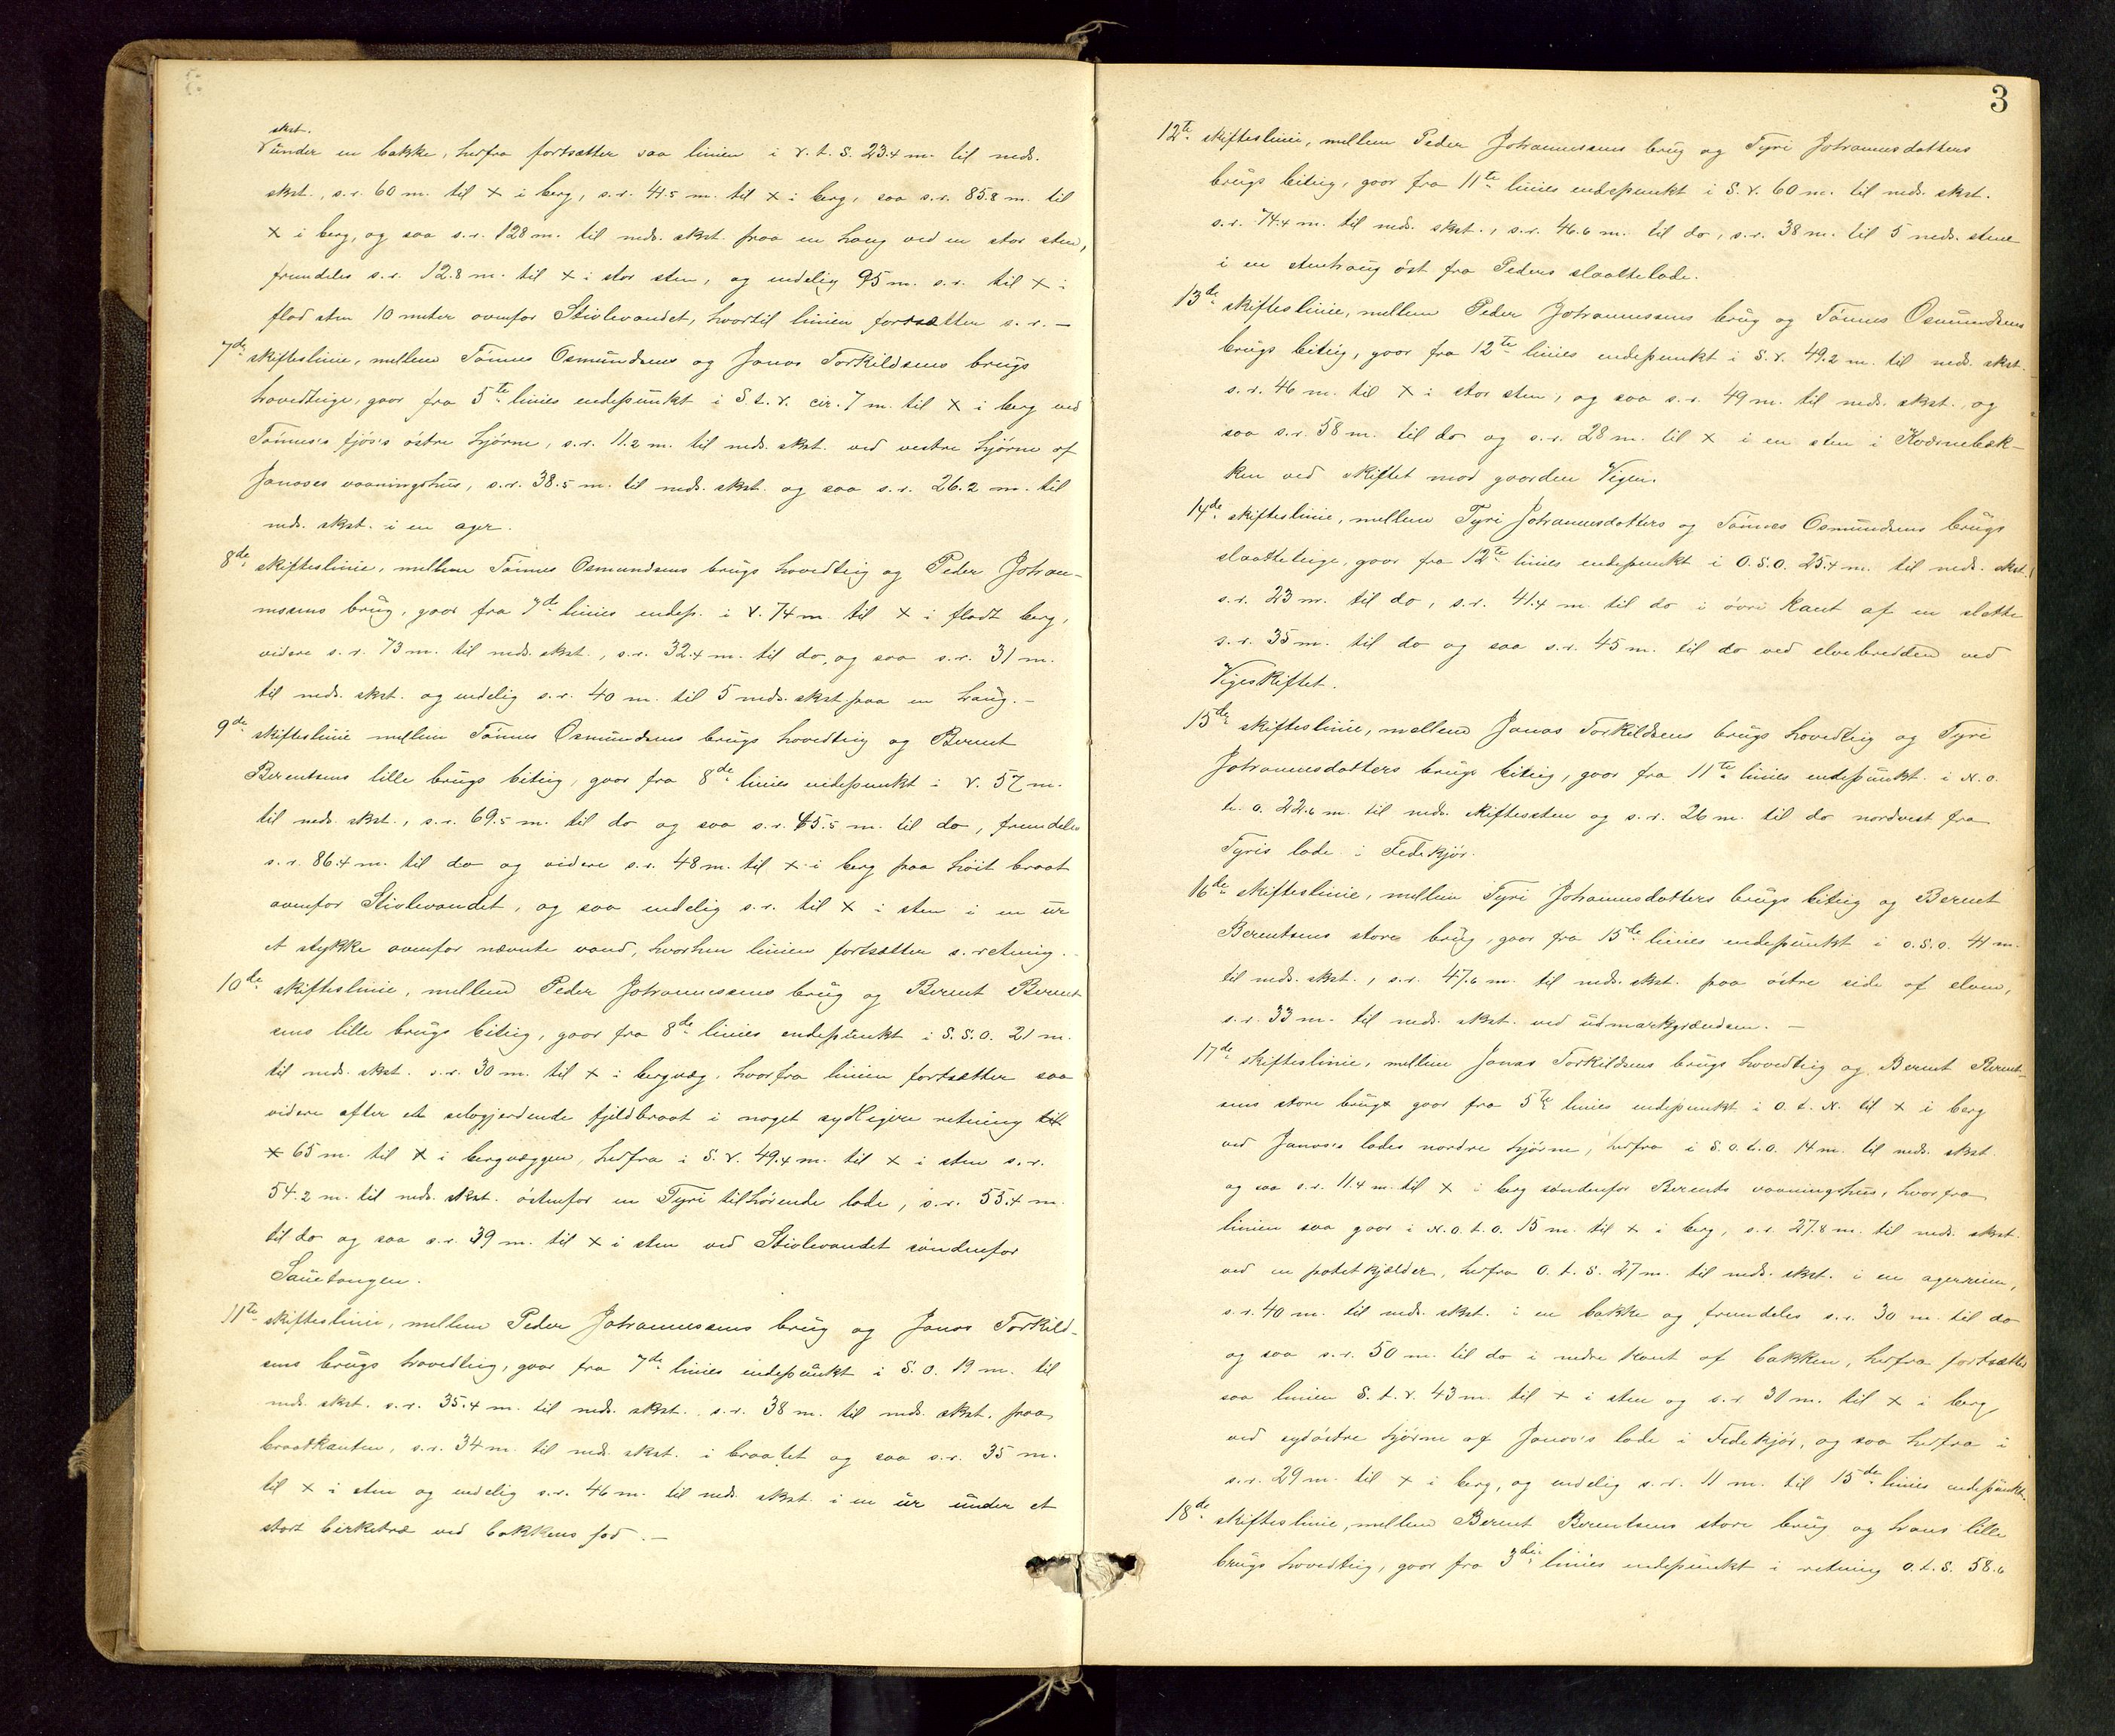 skst.
V under en bakke, herfra fortsætter saa linien i V. t. S. 23.4 m. til neds.
skst., s.r. 60 m. til × i berg, s.r. 41.5 m. til × i berg, saa s.r. 85.8 m. til
× i berg, og saa s.r. 128 m. til neds. skst. paa en haug ved en stor sten,
fremdeles s.r. 12.8 m. til × i stor sten, og endelig 95 m. s.r. til × i
flad sten 10 meter ovenfor Stivlevandet, hvortil linien fortsætter s.r. —
7de skifteslinie, mellem Tønnes Osmundsens og Jonas Torkildsens brugs
hovedteige, gaar fra 5te linies endepunkt i S. t. V. cir. 7 m. til × i berg ved
Tønnes's fjøs's østre hjørne, s.r. 11.2 m. til neds. skst. ved vestre hjørne af
Janases vaaningshus, s.r. 38.5 m. til neds. skst. og saa s.r. 26.2 m. til
neds. skst. i en ager.
8de skifteslinie, mellem Tønnes Osmundsens brugs hovedteig og Peder Johan-
nesens brug, gaar fra 7de linies endep. i V. 74 m. til × i fladt berg,
videre s.r. 73 m. til neds. skst., s.r. 32.4 m. til do, og saa s.r. 31 m.
til neds. skst. og endelig s.r. 40 m. til 5 neds. skst paa en haug. —
9de skifteslinie mellem Tønnes Osmundsens brugs hovedteig og Bernt
Berentsens lille brugs biteig, gaar fra 8de linies endepunkt i V. 57 m.
til neds. skst., s.r. 69.5 m. til do og saa s.r. 45.5 m. til do, fremdeles
s.r. 86.4 m. til do og videre s.r. 48 m. til × i berg paa høit braat
ovenfor Stivlevandet, og saa endelig s.r. til × i sten i en ur
et stykke ovenfor nævnte vand, hvorhen linien fortsætter s. retning.
10de skifteslinie, mellem Peder Johannesens brug og Bernt Bernt
sens lille brugs biteig, gaar fra 8de linies endepunkt i S. S. O. 21 m.
til neds. skst. s.r. 30 m. til × i bergvæg, hvorfra linien fortsætter saa
videre efter et selvgjerdende fjeldbraat i noget sydligere retning til
× 65 m. til × i bergvæggen, herfra i S. V. 49.4 m. til × i sten s.r.
54.2 m. til neds. skst. østenfor en Tyri tilhørende lade, s.r. 55.4 m.
til do og saa s.r. 39 m. til × i sten ved Stivlevandet søndenfor
Sauetangen.
11te skifteslinie, mellem Peder Johannesens brug og Jonas Torkild-
sens brugs hovedteig, gaar fra 7de linies endepunkt i S. O. 19 m. til
neds. skst. s.r. 35.4 m. til neds. skst. s.r. 38 m. til neds. skst. paa
braatkanten, s.r. 34 m. til neds. skst. i braatet og saa s.r. 35 m.
til × i sten og endelig s.r. 46 m. til neds. skst. i en ur under et
stort birketræ ved bakkens fod. —
3
12te skifteslinie, mellem Peder Johannesens brug og Tyri Johannesdatters
brugs biteig, gaar fra 11te linies endepunkt i S. V. 60 m. til neds. skst.
s.r. 74.4 m. til neds. skst., s.r. 46.6 m. til do, s.r. 38 m. til 5 neds. stene
i en stenhaug øst fra Peders slaattelade.
13de skifteslinie, mellem Peder Johannesens brug og Tønnes Osmundsens
brugs biteig, gaar fra 12te linies endepunkt i S. V. 49.2 m. til neds. skst.
s.r. 46 m. til × i stor sten, og saa s.r. 49 m. til neds. skst., og
saa s.r. 58 m. til do og s.r. 28 m. til × i en sten i Kværnebæk-
ken ved skiftet mod gaarden Vigen.
14de skifteslinie, mellem Tyri Johannesdatters og Tønnes Osmundsens brugs
slaatteteige, gaar fra 12te linies endepunkt i O. S. O. 25.4 m. til neds. skst.
s.r. 23 m. til do, s.r. 41.4 m til do i øvre kant af en slette
s.r. 35 m. til do og saa s.r. 45 m. til do ved elvebredden ved
Vigeskiftet.
15de skifteslinie, mellem Jonas Torkildsens brugs hovedteig og Tyri
Johannesdatters brugs biteig, gaar fra 11te linies endepunkt i N. O.
t. O. 22.6 m. til neds. skiftessten og s.r. 26 m. til do nordvest fra
Tyris lade i Fedekjør.
16de skifteslinie, mellem Tyri Johannesdatters brugs biteig og Bernt
Berentsens store brug, gaar fra 15de linies endepunkt i O. S. O. 41 m.
til neds. skst., s.r. 47.6 m. til neds. skst. paa østre side af elven,
s.r. 33 m. til neds. skst. ved udmarksgrændsen. —
17de skifteslinie, mellem Jonas Torkildsens brugs hovedteig og Bernt Bernt-
sens store brugs gaar fra 5te linies endepunkt i O. t. N. til × i berg
ved Janas's lades nordre hjørne, herfra i S. O. t. O. 14 m. til neds. skst.
og saa s.r. 11.4 m. til × i berg søndenfor Berents vaaningshus, hvorfra
linien saa gaar i N. O. t. O. 15 m. til × i berg, s.r. 27.8 m. til neds. skst.
ved en potetkjælder, herfra O. t. S. 27 m. til neds. skst. i en agerreim,
s.r. 40 m. til neds. skst. i en bakke og fremdeles s.r. 30 m. til do
og saa s.r. 50 m. til do i nedre kant af bakken, herfra fortsætter
saa linien S. t. V. 43 m. til × i sten og s.r 31 m. til × i berg
ved sydøstre hjørne af Janas's lade i Fedekjør, og saa herfra i
s.r. 29 m. til × i berg, og endelig s.r. 11 m. til 15de linies endepunkt.
18de skifteslinie, mellem Bernt Berentsens store brug og hans lille
brugs hovedteig, gaar fra 3die linies endepunkt i retning O. t. S. 58.6